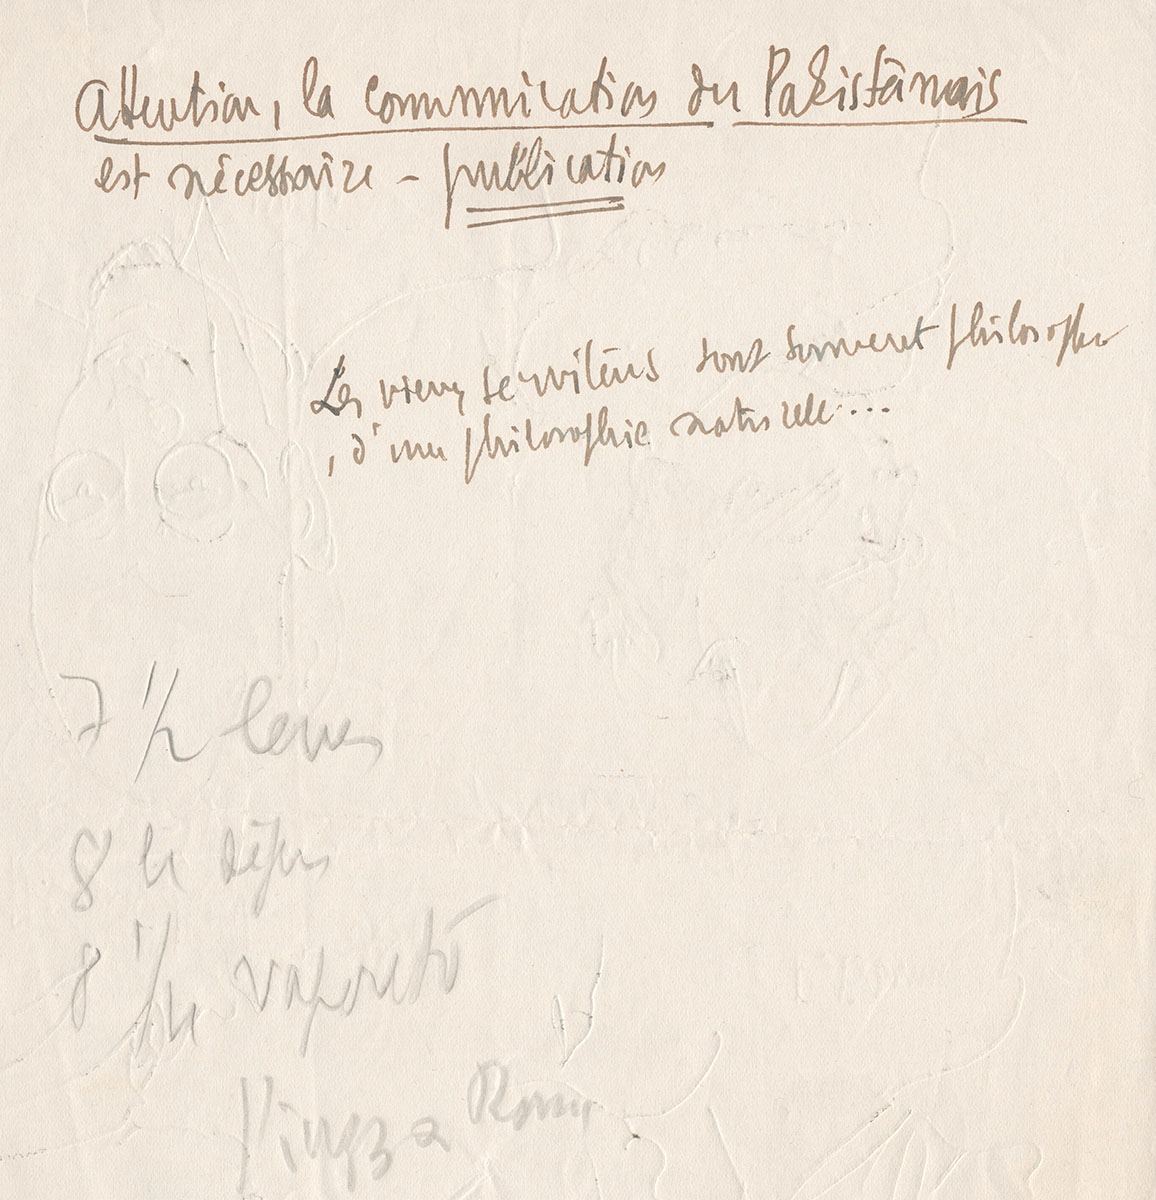 Attention, la communication du Pakistânais
est nécessaire – publication
Les vieux serviteurs sont souvent philosophes
, d'une philosophie naturelle....
7 1/2 lever
8 h déjeu
8 1/2 h vaporetto
Rome